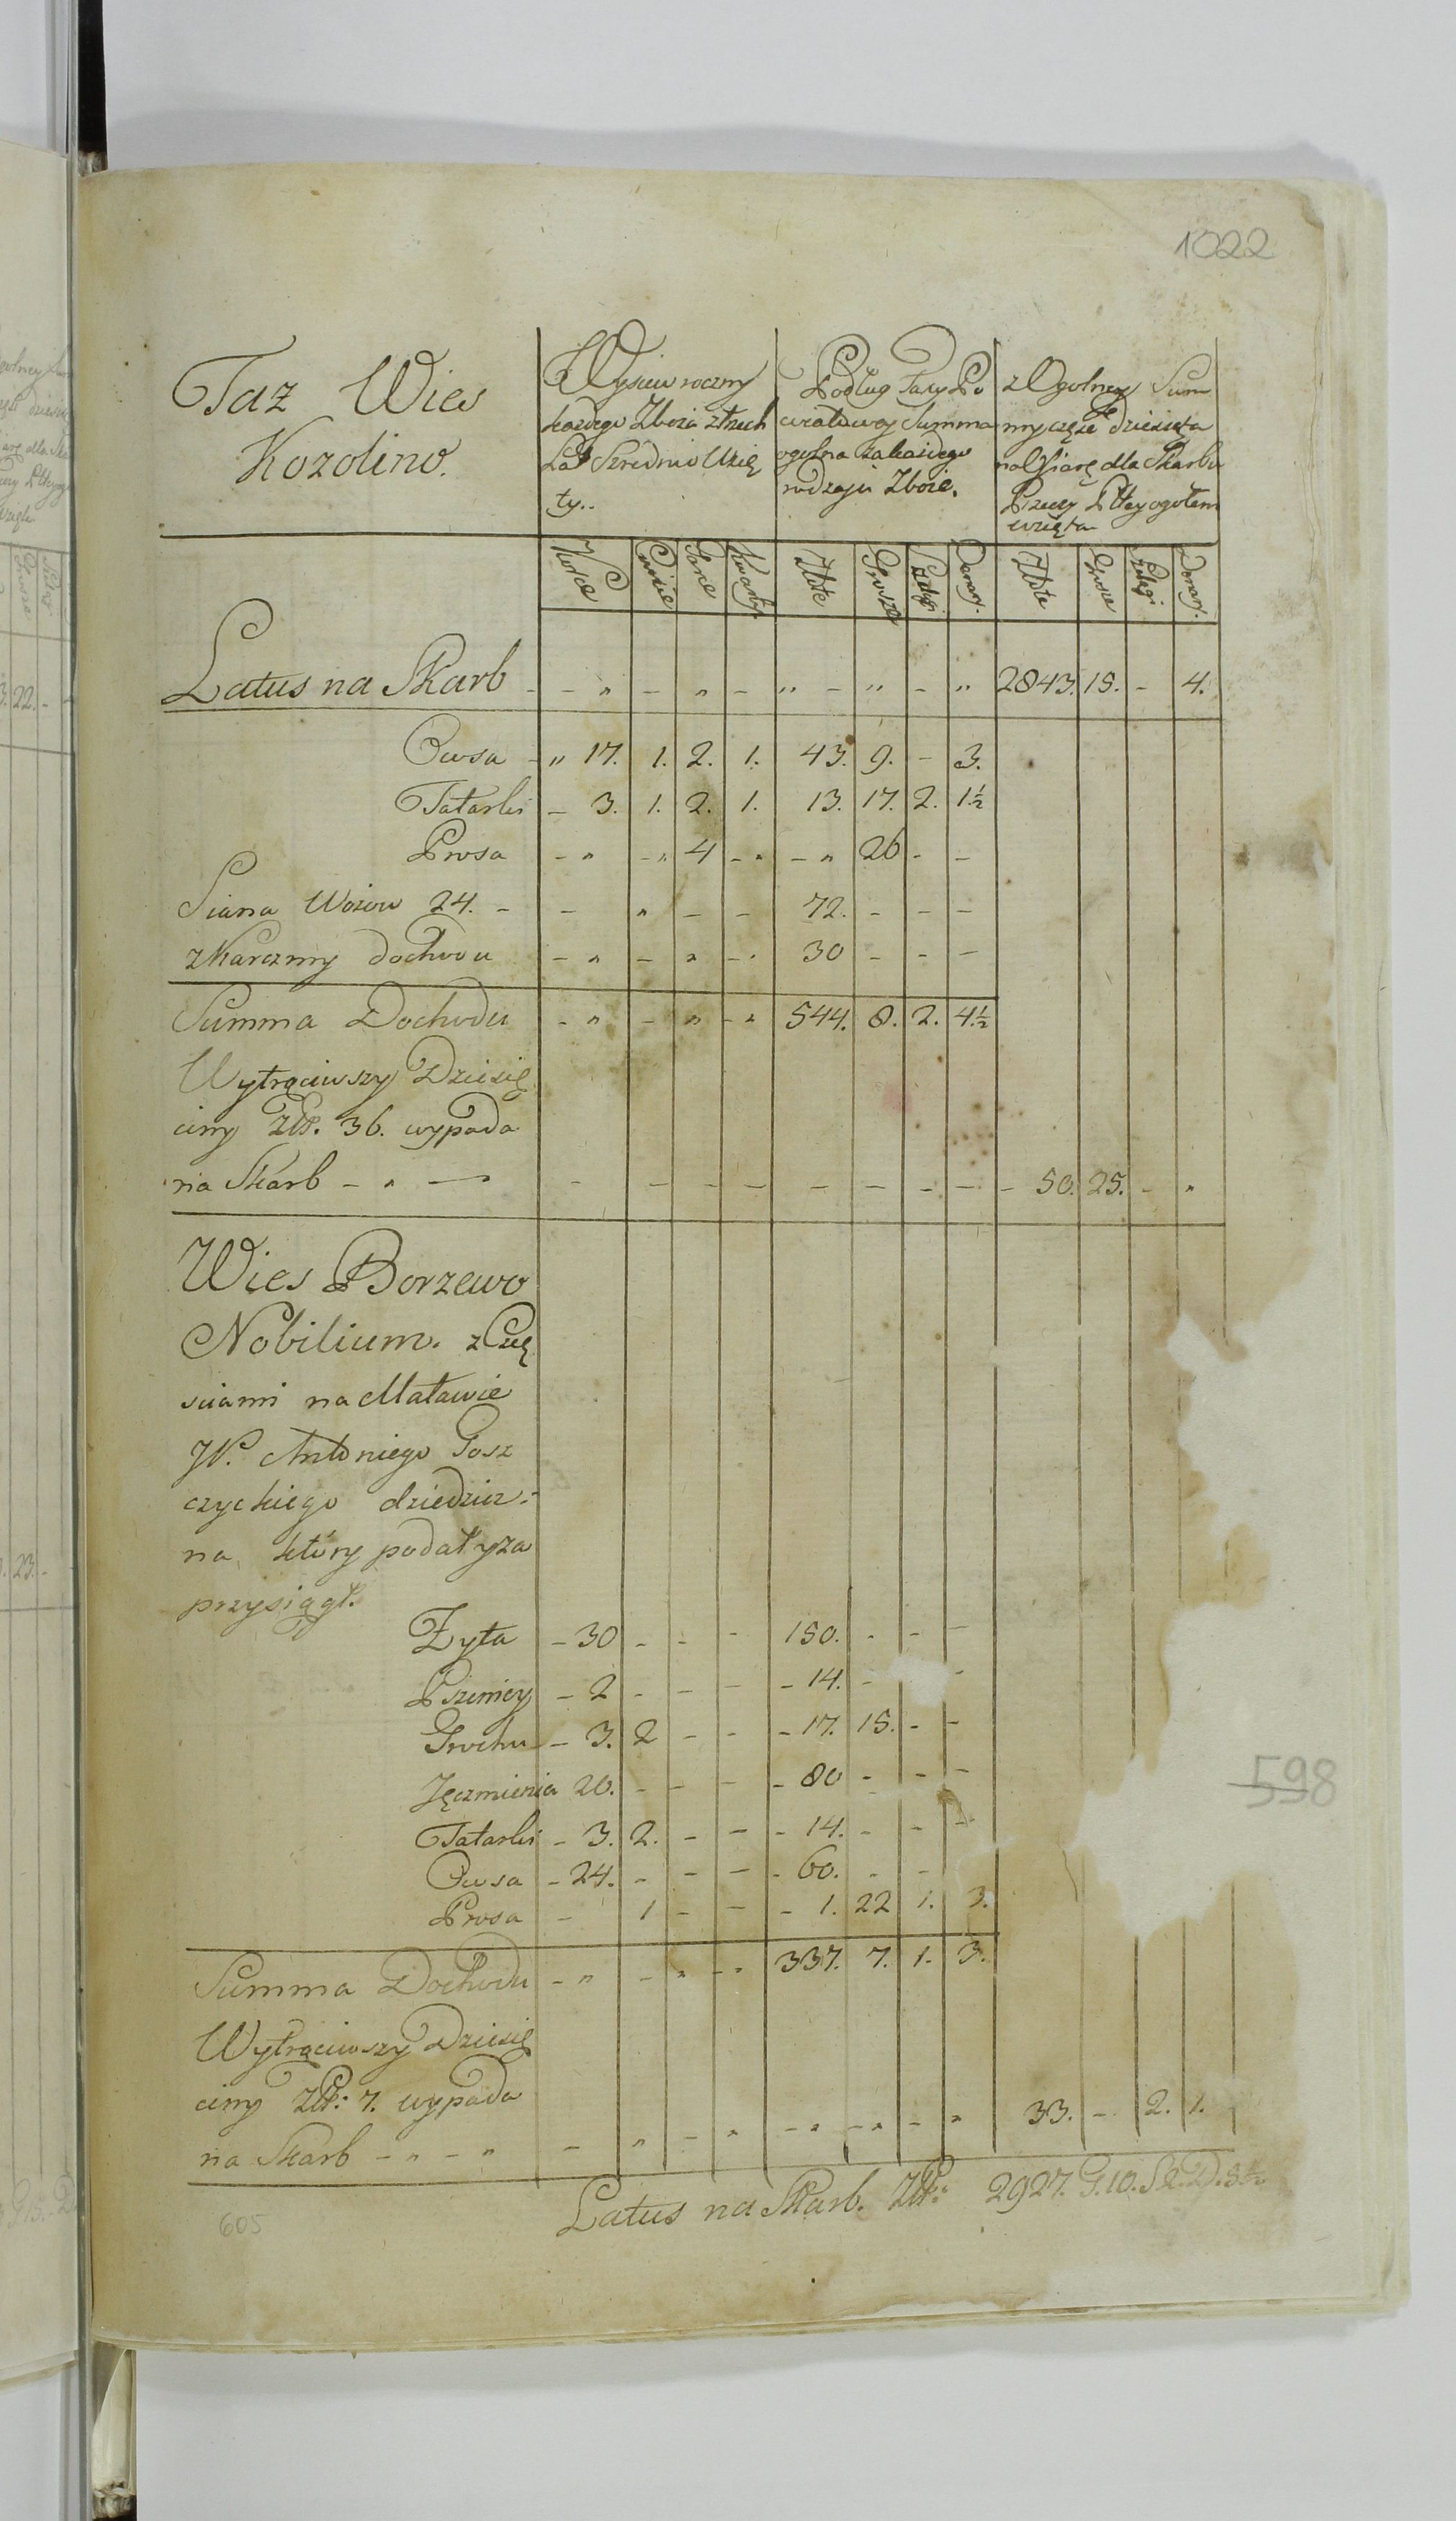 1022
Taz Wies
Kozolino.
Wysiew roczny
kazdego Zboża z trzech
Lat Szrednio Uzię
ty..
Podług Taxy Po
wiatowey Summa
ogolna za każdego
rodzaju Zboże.
z Ogolney Sum
my częźć dziesięta
na Ofiarę dla Skarbu
Rzeczy Pltey ogołem
wzięta
Korce Cwierci Garce Kwarty Złote Grosze Szelągi Denary. Złote Grosze Szelągi Denary.
Latus na Skarb - - „ - „ - „ - „ - „ 2843. 15. - 4.
Owsa - „ 17. 1. 2. 1. 43. 9. - 3.
Tatarki - 3. 1. 2. 1. 13. 17. 2. 1.½
Prosa - „ - „ 4 - „ - „ 26 - -
Siana Wozow 24. - - „ - - 72. - - -
z Karczmy dochodu - „ - „ - „ 30 - - -
Summa Dochodu - „ - „ - „ 544. 8. 2. 4.½
Wytrąciwszy Dziesię
ciny Złt. 36. wypada
na Skarb - „ - - - - - - - - - - 50. 25. - „
Wies Borzewo
Nobilium. z Czę
sciami na Matawie
JP. Antoniego Gosz
czyckiego dziedzicz:
na który podał y za
przysiągł.
Żyta - 30 - - - 150. - - -
Pszenicy - 2 - - - - 14. - -
Grochu - 3. 2 - - - 17. 15. - -
Jęczmienia 20. - - - - 80 - - -
Tatarki - 3. 2. - - - 14. - - -
Owsa - 24. - - - - 60. - -
Prosa - 1 - - - 1. 22 1. 3.
Summa Dochodu - „ - „ - „ 337. 7. 1. 3.
Wytrąciwszy Dziesię
ciny Złt: 7. wypada
na Skarb - „ - „ - „ - „ - „ - „ - „ 33. - 2. 1.
Latus na Skarb. Złt: 2927. G. 10. S 2. D. 3.½
598
605